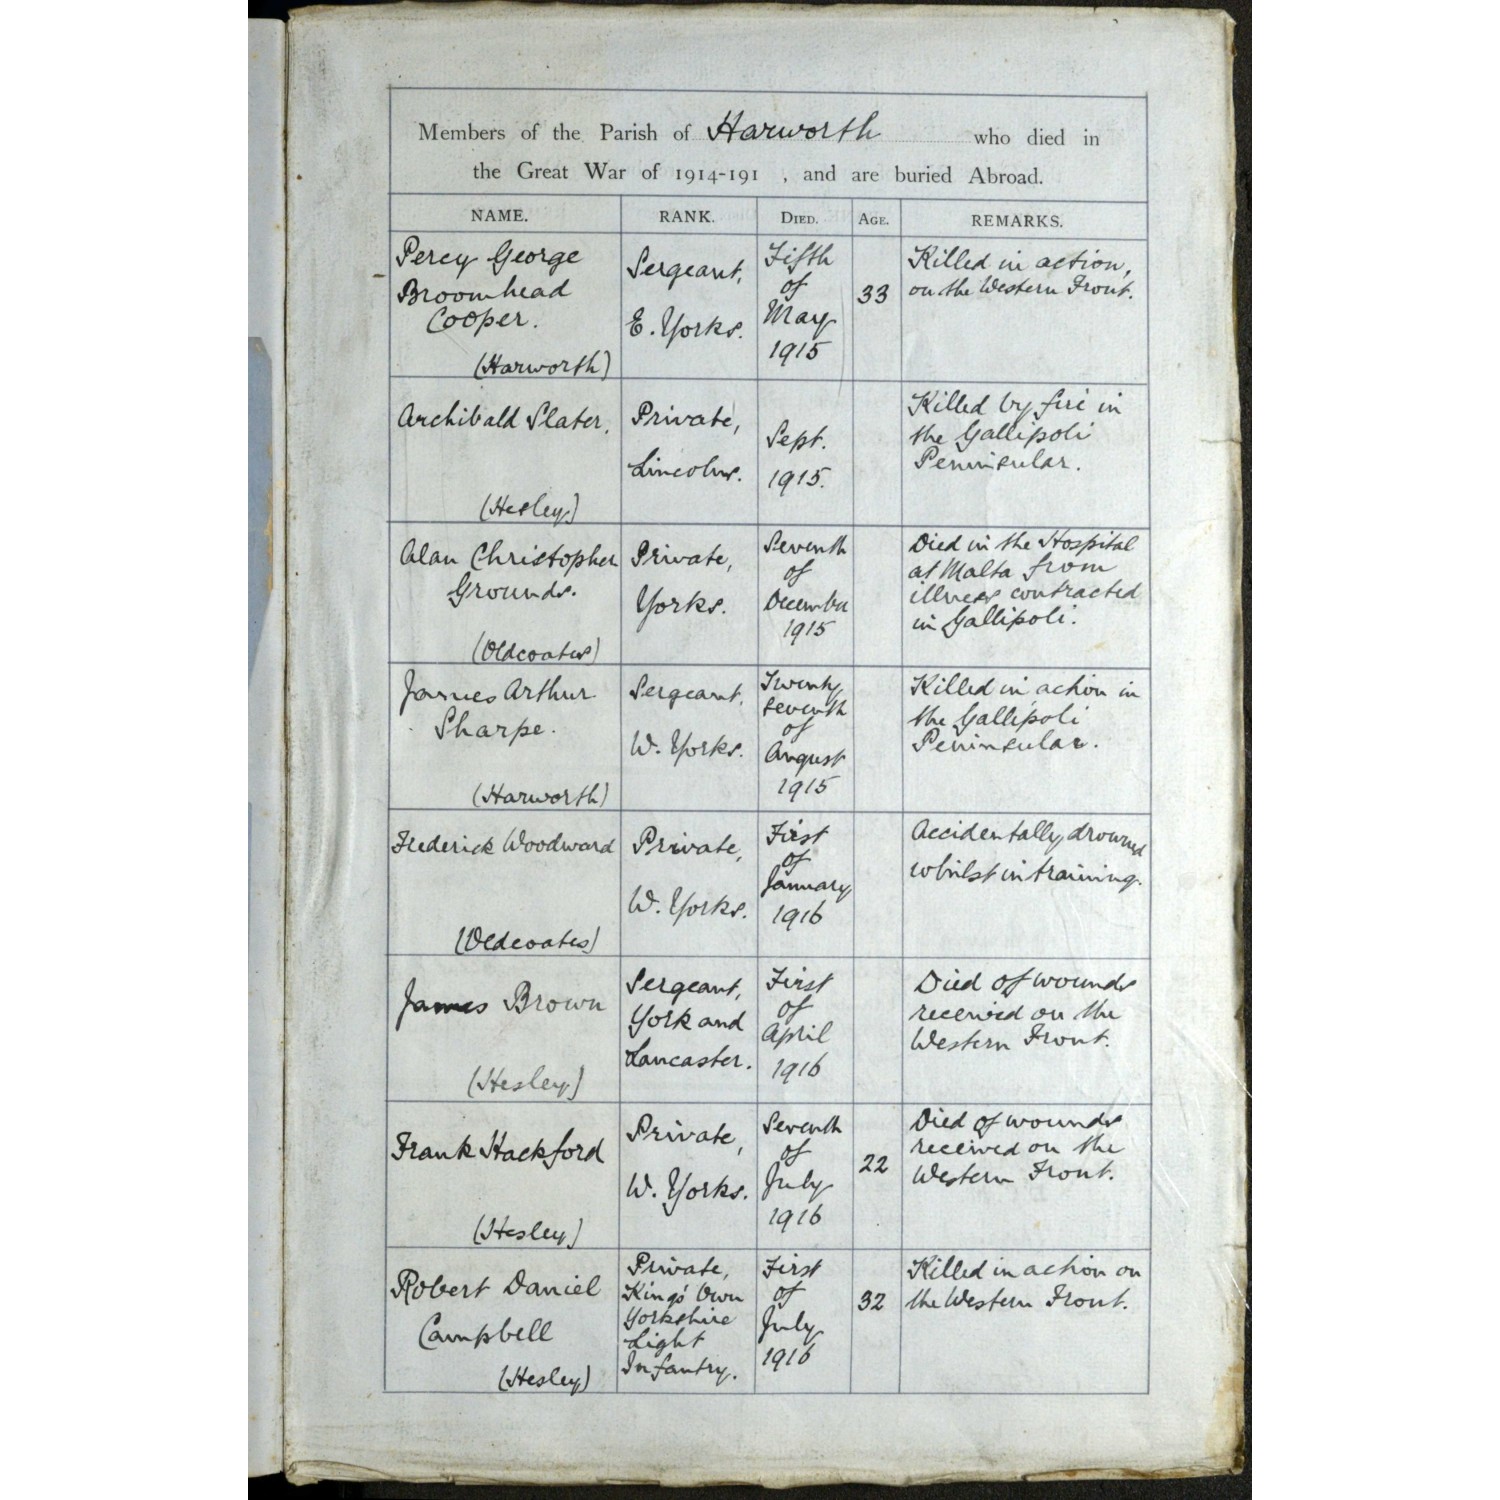 Members of the Parish of Harworth who died in
the Great War of 1914-191 , and are buried Abroad.
NAME. RANK. DIED. AGE. REMARKS.
Percy George
Broomhead
Cooper.
(Harworth)
Sergeant,
E. Yorks.
Fifth
of
May
1915
33
Killed in action,
on the Western Front.
Archibald Slater.
(Hesley)
Private,
Lincolns.
Sept.
1915.
Killed by fire in
the Gallipoli
Peninsular.
Alan Christopher
Grounds.
(Oldcoates)
Private,
Yorks.
Seventh
of
December
1915
Died in the Hospital
at Malta from
illness contracted
in Gallipoli.
James Arthur
Sharpe.
(Harworth)
Sergeant,
W. Yorks.
Twenty
seventh
of
August
1915
Killed in action in
the Gallipoli
Peninsular.
Frederick Woodward
(Oldcoates)
Private,
W. Yorks.
First
of
January
1916
Accidentally drowned
whilst in training.
James Brown
(Hesley)
Sergeant,
York and
Lancaster.
First
of
April
1916
Died of wounds
received on the
Western Front.
Frank Hackford
(Hesley)
Private,
W. Yorks.
Seventh
of
July
1916
22
Died of wounds
received on the
Western Front.
Robert Daniel
Campbell
(Hesley)
Private,
King's Own
Yorkshire
Light
Infantry.
First
of
July
1916
32
Killed in action on
the Western Front.